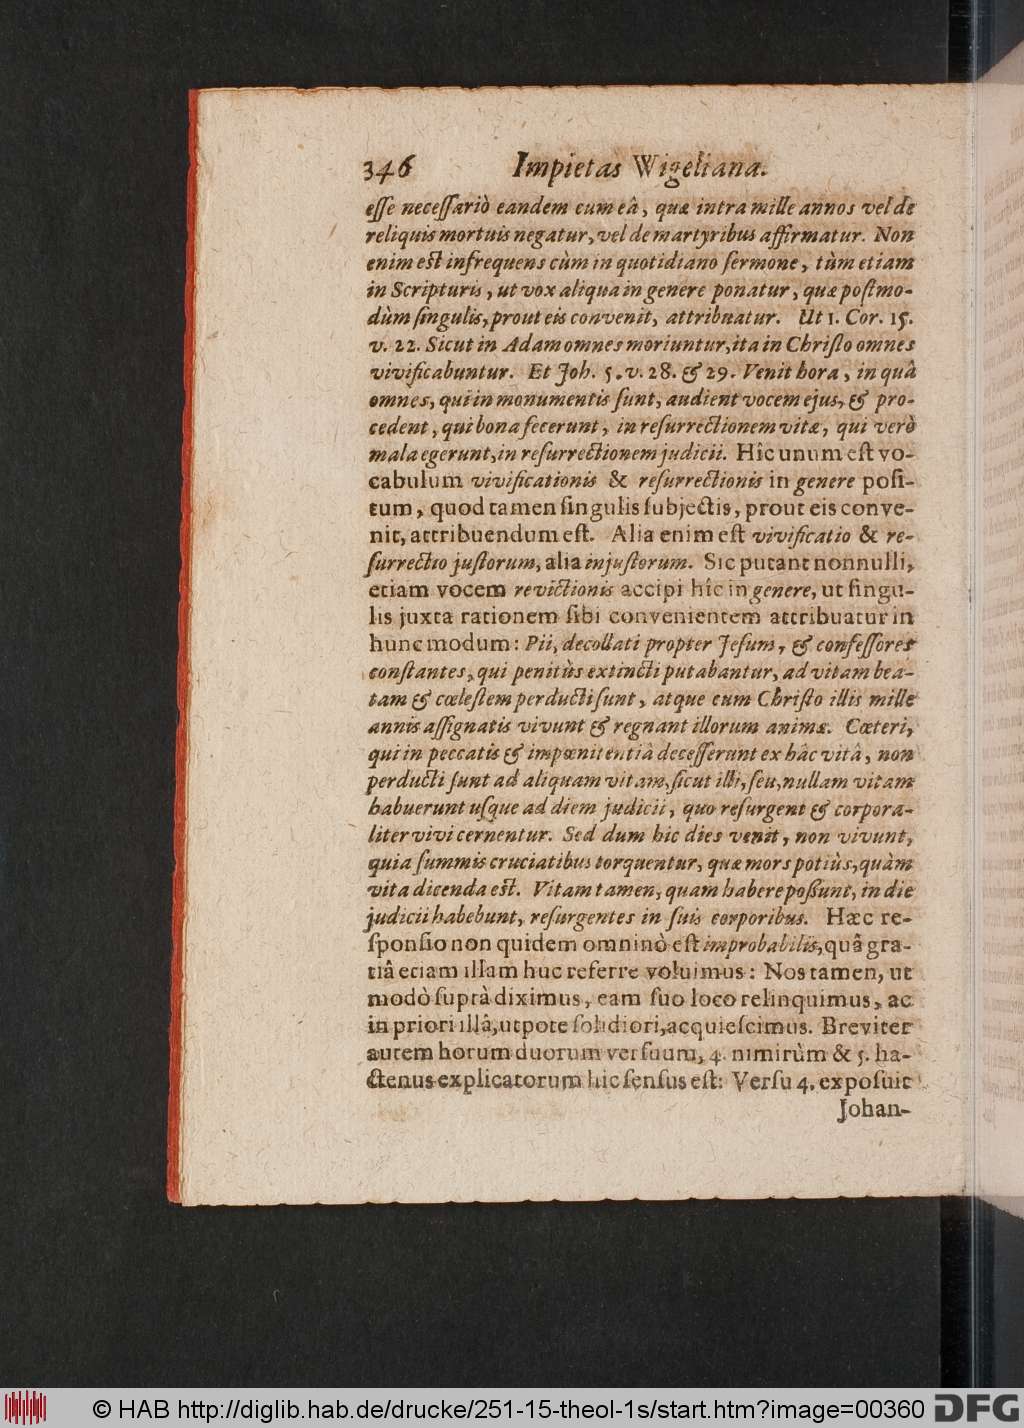 346 Impietas Wigeliana.
esse necessariò eandem cum eâ, quæ intra mille annos vel de
reliquis mortuis negatur, vel de martyribus affirmatur. Non
enim est infrequens cùm in quotidiano sermone, tùm etiam
in Scripturis, ut vox aliqua in genere ponatur, quæ postmo-
dùm singulis, prout eis convenit, attribuatur. Ut 1. Cor. 15.
v. 22. Sicut in Adam omnes moriuntur, ita in Christo omnes
vivificabuntur. Et Joh. 5. v. 28. & 29. Venit hora, in quâ
omnes, qui in monumentis sunt, audient vocem ejus, & pro-
cedent, qui bona fecerunt, in resurrectionem vitæ, qui verò
mala egerunt, in resurrectionem judicii. Hîc unum est vo-
cabulum vivificationis & resurrectionis in genere posi-
tum, quod tamen singulis subjectis, prout eis conve-
nit, attribuendum est. Alia enim est vivificatio & re-
surrectio justorum, alia injustorum. Sic putant nonnulli,
etiam vocem revictionis accipi hîc in genere, ut singu-
lis juxta rationem sibi convenientem attribuatur in
hunc modum: Pii, decollati propter Jesum, & confessores
constantes, qui penitùs extincti putabantur, ad vitam bea-
tam & cœlestem perducti sunt, atque cum Christo illis mille
annis assignatis vivunt & regnant illorum animæ. Cœteri,
qui in peccatis & impœnitentiâ decesserunt ex hâc vitâ, non
perducti sunt ad aliquam vitam, sicut illi, seu, nullam vitam
habuerunt usque ad diem judicii, quo resurgent & corpora-
liter vivi cernentur. Sed dum hic dies venit, non vivunt,
quia summis cruciatibus torquentur, quæ mors potiùs, quàm
vita dicenda est. Vitam tamen, quam habere possunt, in die
judicii habebunt, resurgentes in suis corporibus. Hæc re-
sponsio non quidem omninò est improbabilis, quâ gra-
tiâ etiam illam huc referre voluimus: Nos tamen, ut
modò suprà diximus, eam suo loco relinquimus, ac
in priori illâ, utpote solidiori, acquiescimus. Breviter
autem horum duorum versuum, 4. nimirùm & 5. ha-
ctenus explicatorum hic sensus est: Versu 4. exposuit
Johan-
© HAB http://diglib.hab.de/drucke/251-15-theol-1s/start.htm?image=00360
DFG